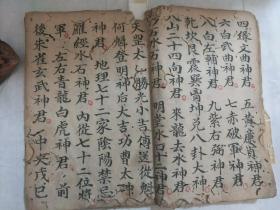 四祿文曲神君 五黃廉貞神君
六白武曲神君 七赤破軍神君
八白左輔神君 九紫右弼神君
乾坎艮震巽离坤兌八卦大神
山二十四向神君 來龍去水神君
石水石神君 明堂水口十二神君
定罡太乙 勝光小吉 傳送從魁
何魁登明神后大吉功曹太
神君 地理七十二家陰陽禁忌
羅經水石神君 內從七十二位將
軍 左右青龍白虎神君 前
後朱雀玄武神君 中央戊己